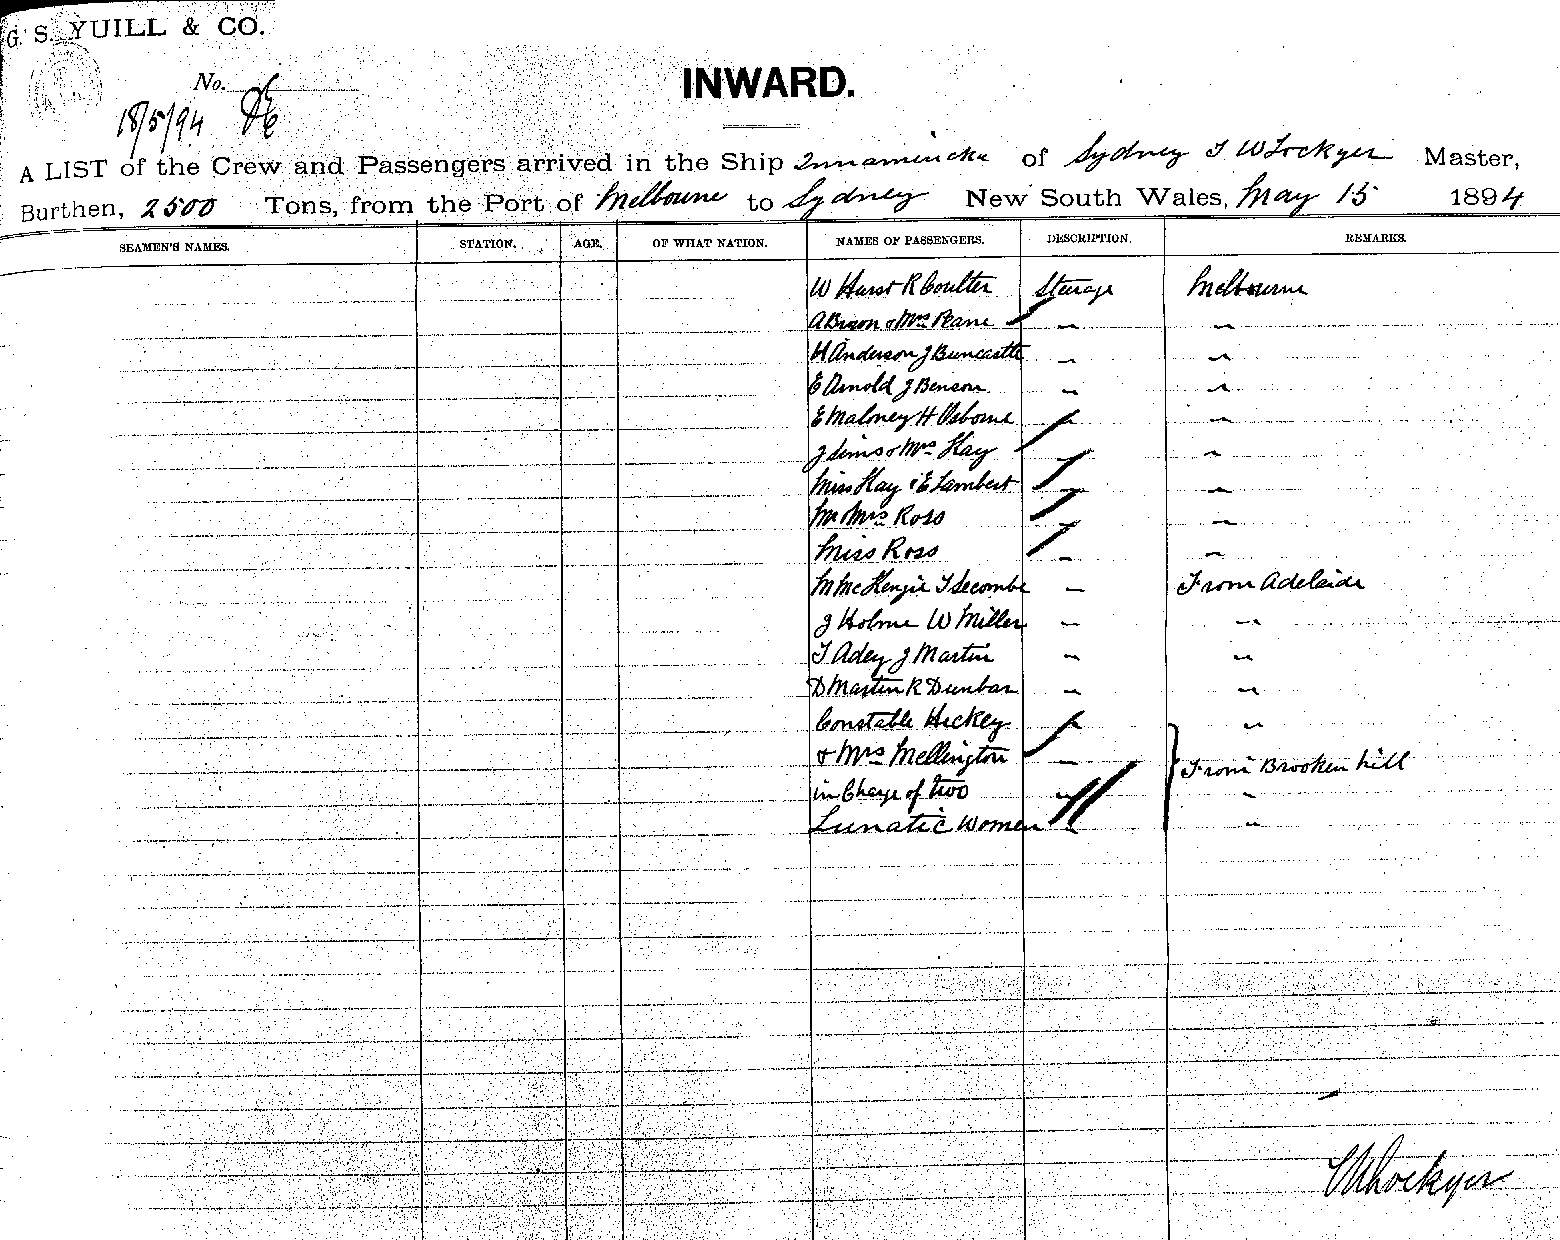 G. S. YUILL & CO.
No.
18/5/94
INWARD.
A LIST of the Crew and Passengers arrived in the Ship Innamincka of Sydney T W Lockyer Master,
Burthen, 2500 Tons, from the Port of Melbourne to Sydney New South Wales, May 15 1894
SEAMEN'S NAMES. STATION. AGE. OF WHAT NATION. NAMES OF PASSENGERS. DESCRIPTION. REMARKS.
W Hurst R Coulter Steerage Melbourne
& Mrs " "
H Anderson J Buncastle " "
E Arnold J Benson " "
E Maloney H Osborne " "
J Sims & Mrs Hay " "
Miss Hay & E Lambert " "
Mr Mrs Ross " "
Miss Ross " "
M McKenzie T Secombe " From Adelaide
J Holme W Miller " "
T Adey J Martin " "
D Martin R Dunbar " "
Constable Hickey " "
& Mrs Mellington " From Brooken hill
in Charge of two " "
Lunatic women " "
T W Lockyer